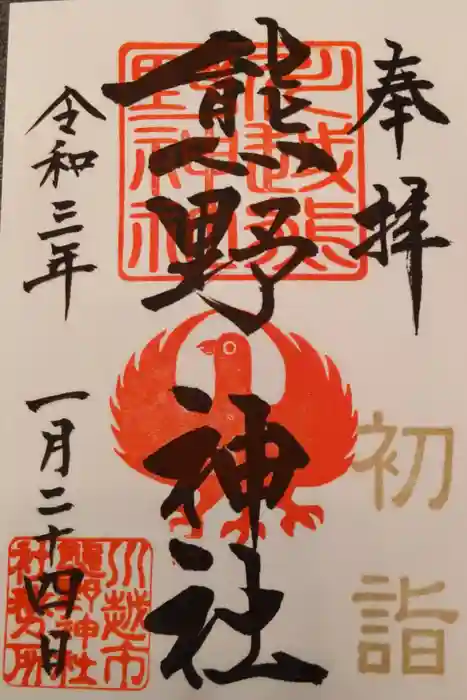 奉拝
初詣
川越熊野神社
熊野神社
令和三年
一月二十四日
川越市
熊野神社
社務所